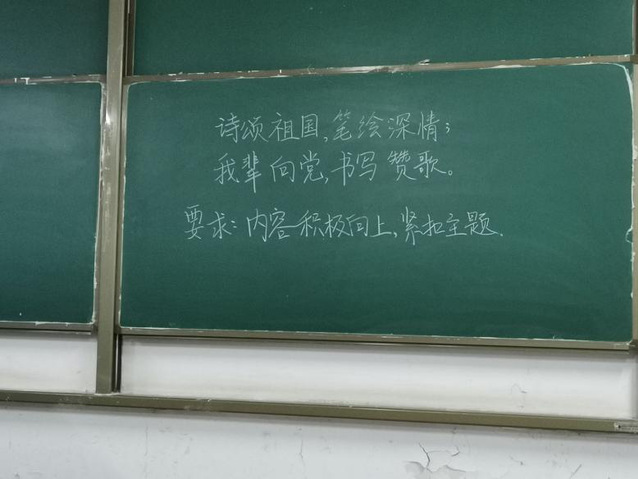 诗颂祖国,笔绘深情;
我辈向党,书写赞歌。
要求:内容积极向上,紧扣主题.